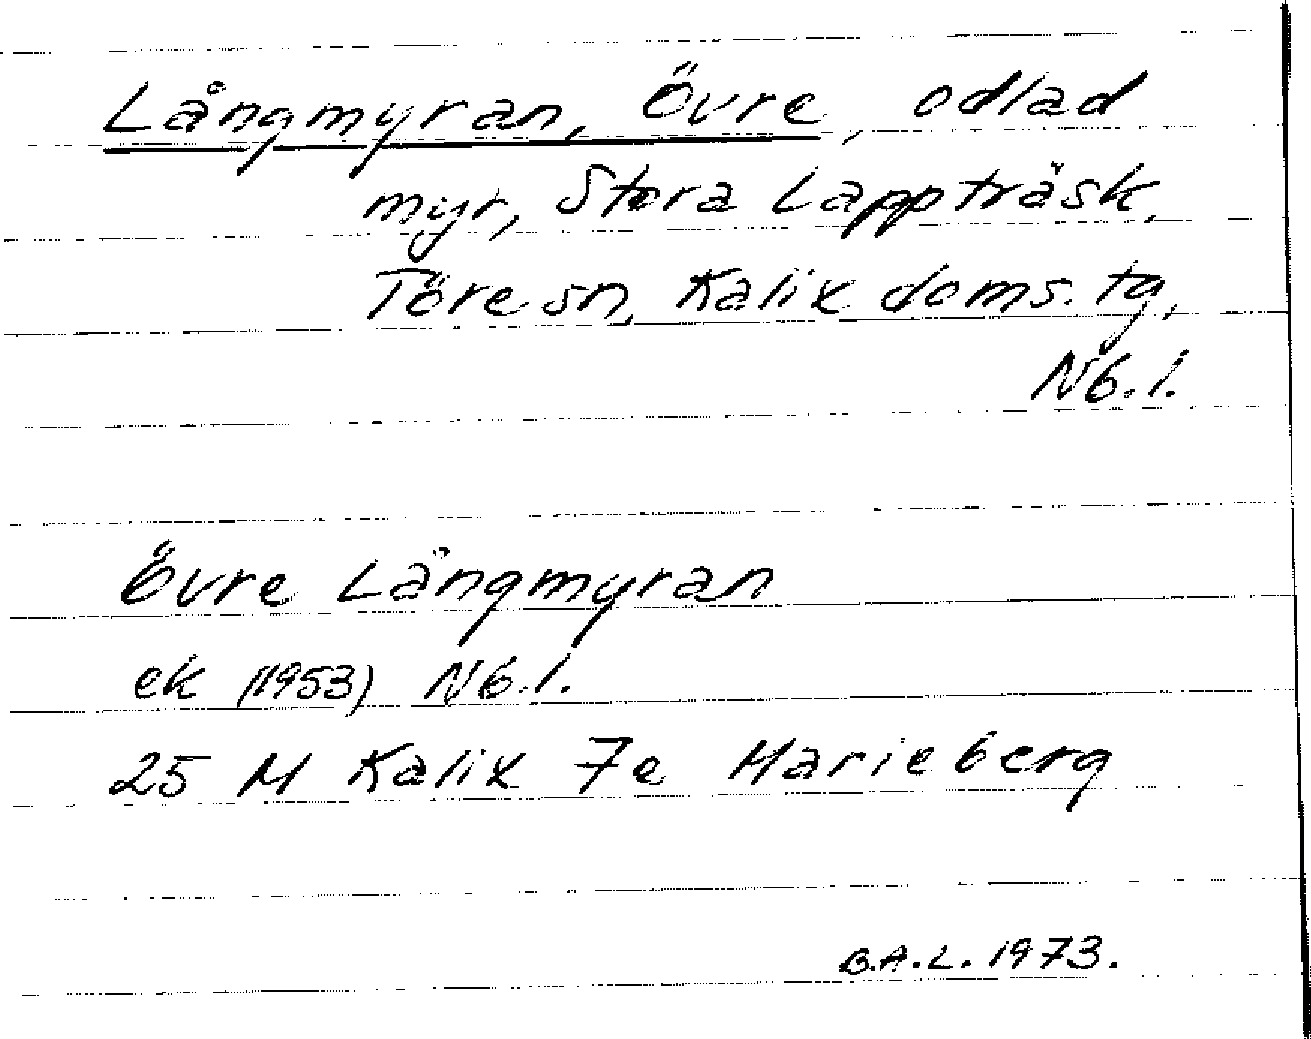 Långmyran, Övre, odlad
myr, Stora Lappträsk,
Töre sn, Kalix doms. tg,
Nb. l.
Övre Långmyran
ek (1953) Nb. l.
25 M Kalix 7e Marieberg
B.A.L. 1973.